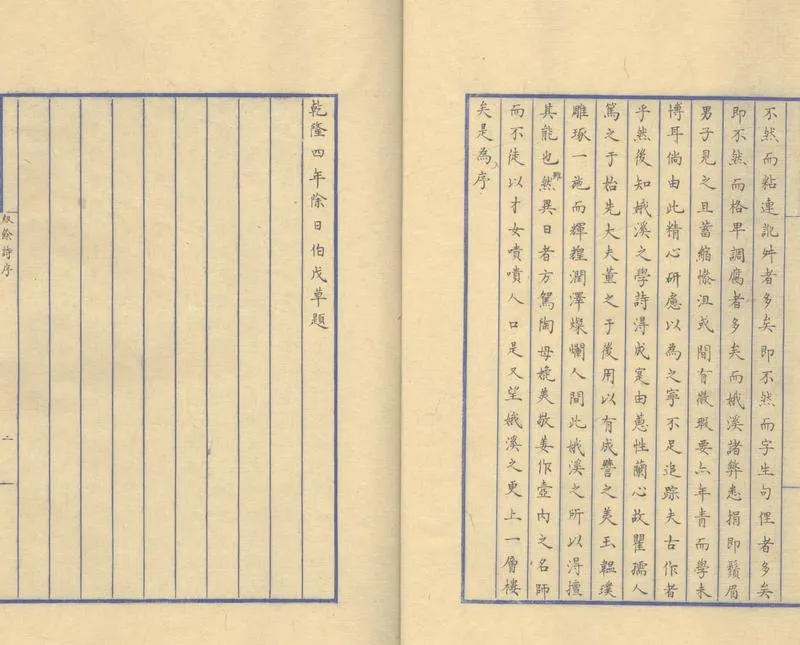 不然而粘連訛舛者多矣即不然而字生句俚者多矣
即不然而格卑調腐者多矣而娥溪諸弊悉捐即鬚眉
男子見之且蓄縮慘沮或間有微瑕要亦年青而學未
博耳倘由此精心研慮以為之寧不足追踪夫古作者
乎然後知娥溪之學詩得成寔由蕙性蘭心故瞿孺人
篤之于始先大夫董之于後用以有成譬之美玉韞璞
雕琢一施而輝煌潤澤燦爛人間此娥溪之所以得擅
其能也雖然異日者方駕陶母媲美敬姜作壼內之名師
而不徒以才女嘖嘖人口是又望娥溪之更上一層樓
矣是為序
乾隆四年除日伯戊草題
紉餘詩序
二